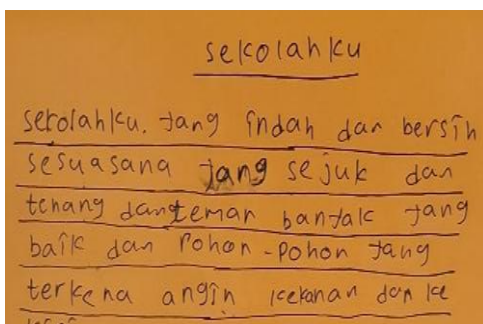 sekolahku
sekolahku. Jang indah dan bersih
sesuasana jang sejuk dan
tenang dan teman banjak jang
baik dan Pohon-Pohon Jang
terkena angin kekanan dan ke